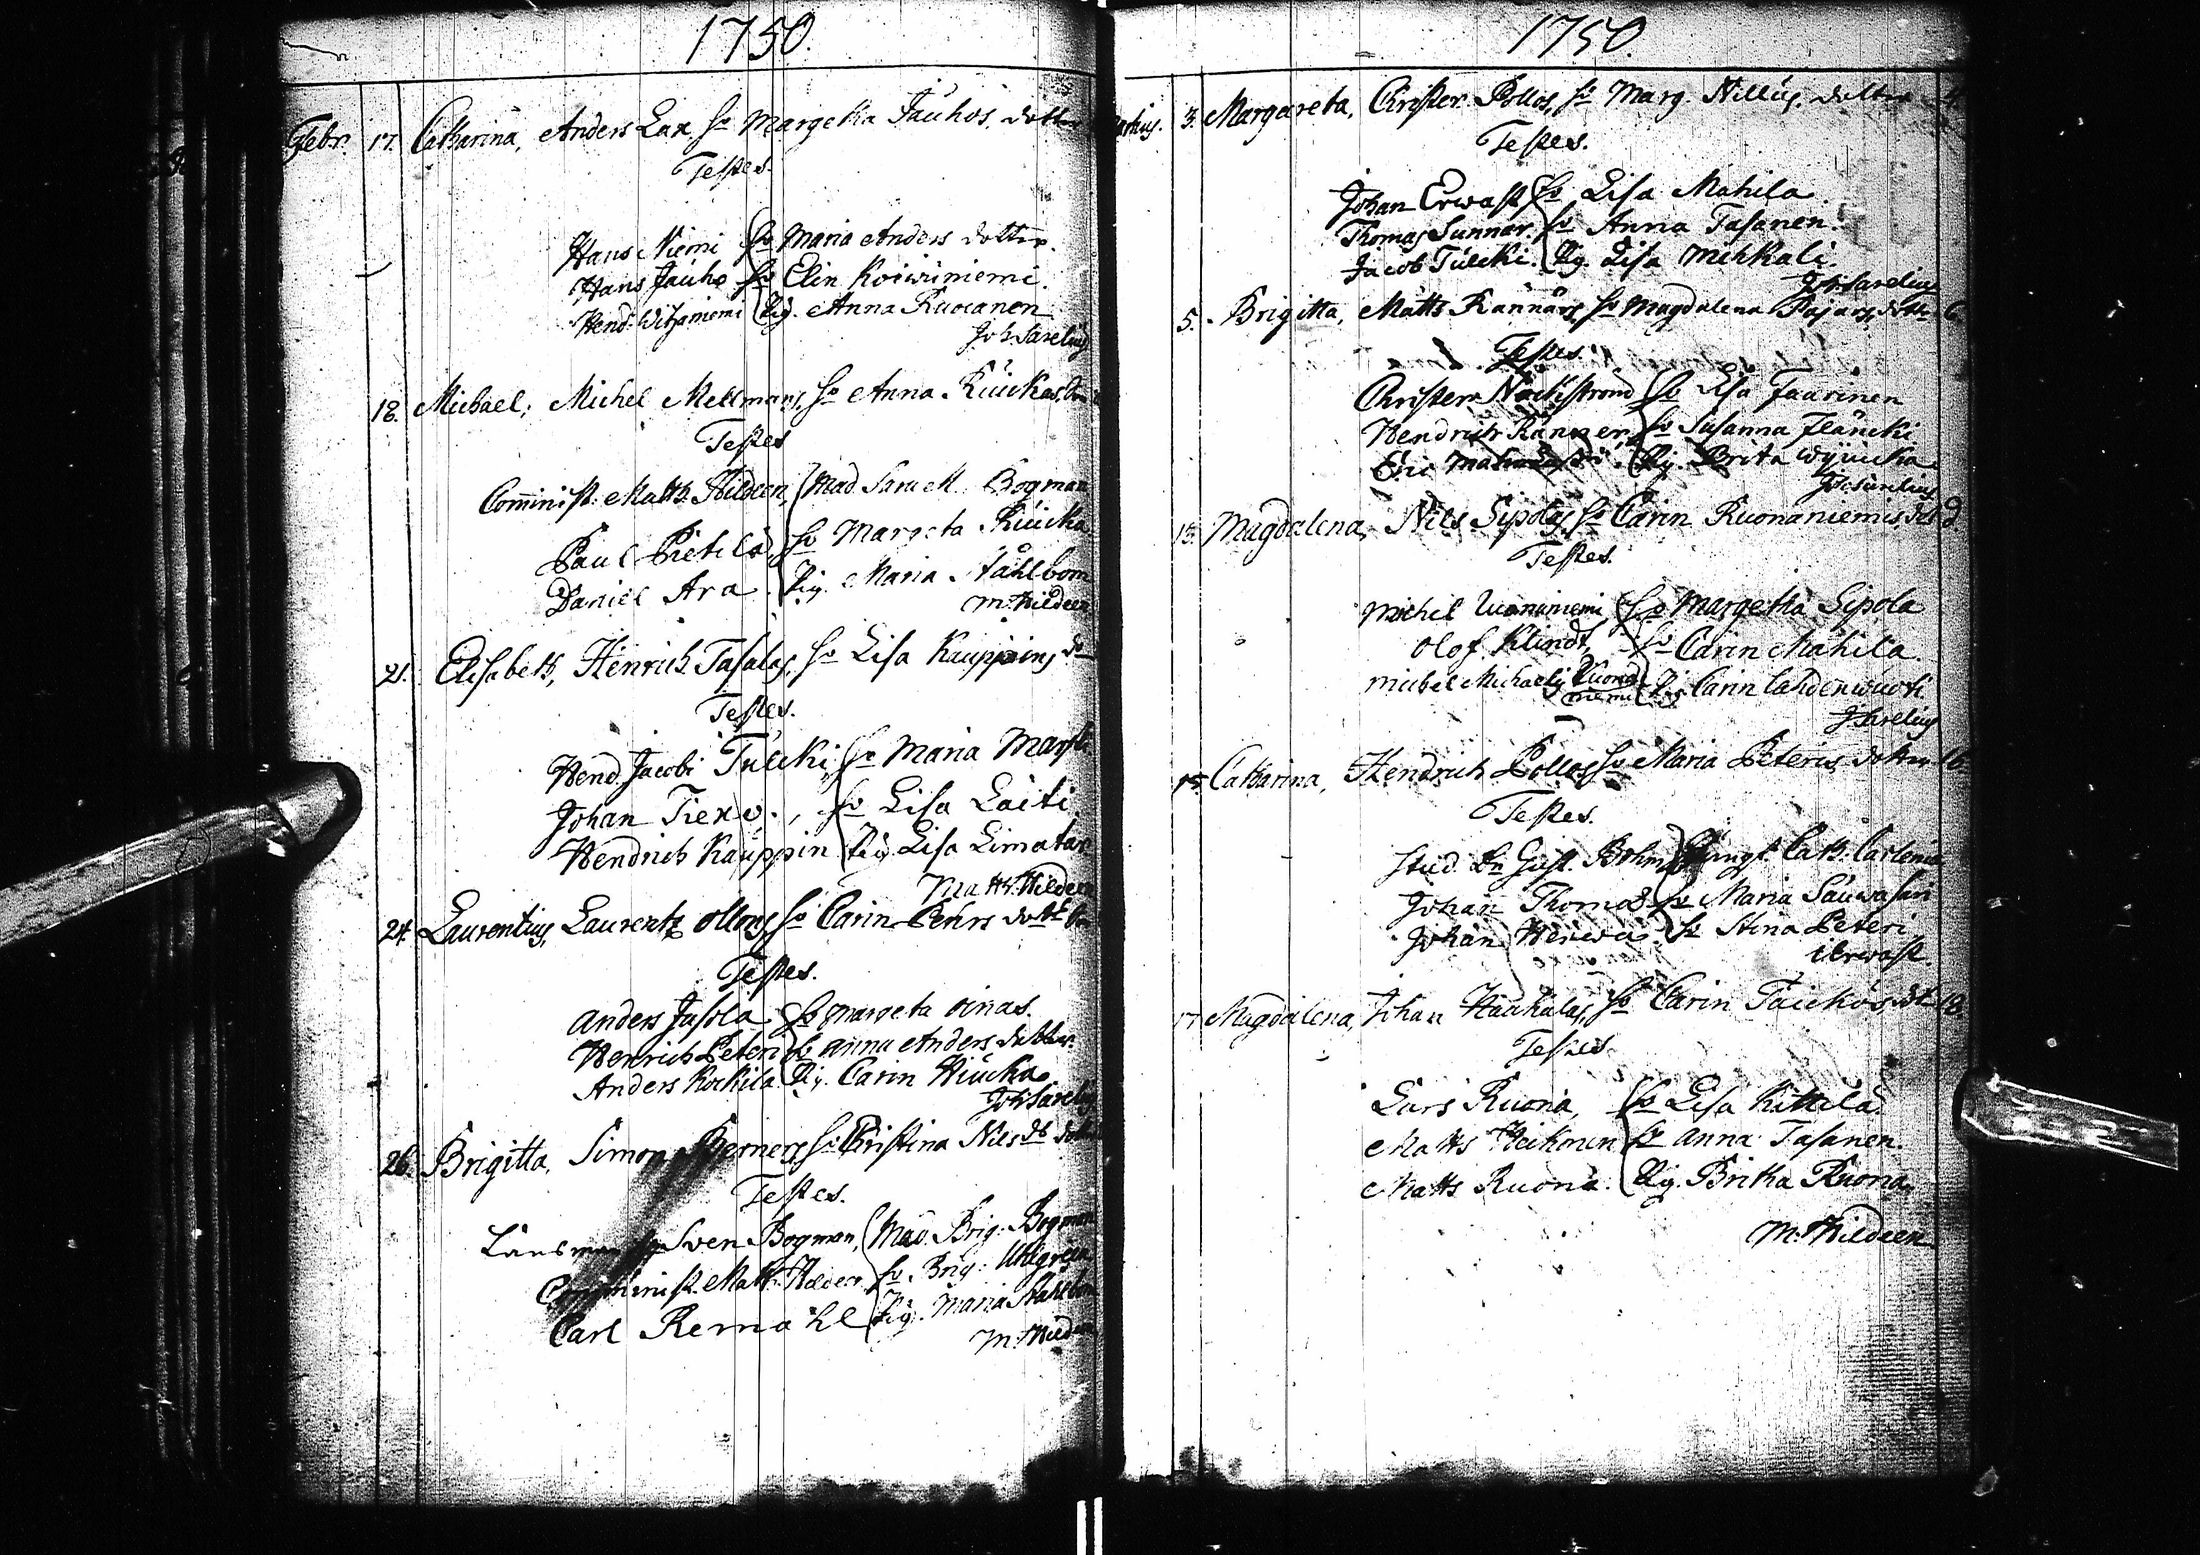 1750.
Febr. 17. Catharina, Anders Lax, hu Margetha Jauhos, dotter
Testes.
Hans Niemi hu Maria Anders dotter.
Hans Jauho hu Elin Koiwuniemi.
Hend: Witzaniemi Pig. Anna Ruocanen
Joh: Sarelius
18. Michael, Michel Mellmans, hu Anna Kuickas, son
Testes
Comminist: Matth. Hildeen, Mad. Sara M. Bogman
Paul Pietilä, hu Margeta Kuicka
Daniel Ara. Pig. Maria Ståhlbom
M: Hildeen
21. Elisabeth, Henrich Tasalas, hu Lisa Kauppins
Testes.
Hend. Jacobi Tulcki, hu Maria
Johan Tiero., hu Lisa Laiti.
Hendrich Kauppin Pig. Lisa Limatan
Matth. Hildeen
24. Laurentius, Laurentz ollons, hu Carin Pehrs dott:
Testes.
Anders Jasola hu Margeta oinas.
Henrich Peteri hu anna Anders dotter.
Anders Kockila. Pig. Carin Hiucka
Joh: Sarelius
26. Brigitta, Simon Berners, hu Christina Nils dr
Testes.
Länsman Sven Bogman, Mad. Brig: Bogman
Comminist. Matth. Hildeen, hu. Brig: Uhlgreen
Carl Remahl Pig. Maria Ståhlbom
M: Hildeen
1750.
3. Margareta, Christer Pollos, hu Marg. Nillus, dotter
Testes.
Johan Erwast, hu Lisa Mahila.
Thomas Sunnar. hu Anna Tasanen.
Jacob Tulcki. Pig. Lisa Mehkali.
Joh: Sarelius
5. Brigitta, Matts Kännärs, hu Magdalena Pajars, dotter 6
Testes.
Christer Näckstrand hu Lisa Jaarinen
Hendrich Känner, hu Susanna
Eric Pig. Brita
Joh: Sarelius
13. Magdalena, Nils Sipolas, hu Carin Ruonaniemis, dot
Testes.
Michel Ruonaniemi, hu Margetha Sipola
Olof Klindt, hu Carin Mahila.
Michel Michaelis Ruona niemi Pig. Carin Cahdenwuoti
J: Sarelius
15. Catharina, Hendrich Pollos, hu Maria Peteris, dotter 16
Testes.
Stud. Hr Gust. Bohm, Jungf. Cath: Carlenia
Johan Thomas hu Maria Sauwasari
Johan Herwa hu Stina Peteri
Erwast
17. Magdalena, Johan Haahalas, hu Carin Tuickos, dot 18
Testes
Lars Ruona, hu Lisa Kittilä.
Matts Heikonen hu Anna Tasanen.
Matts Ruona. Pig. Britha Ruona
M: Hildeen